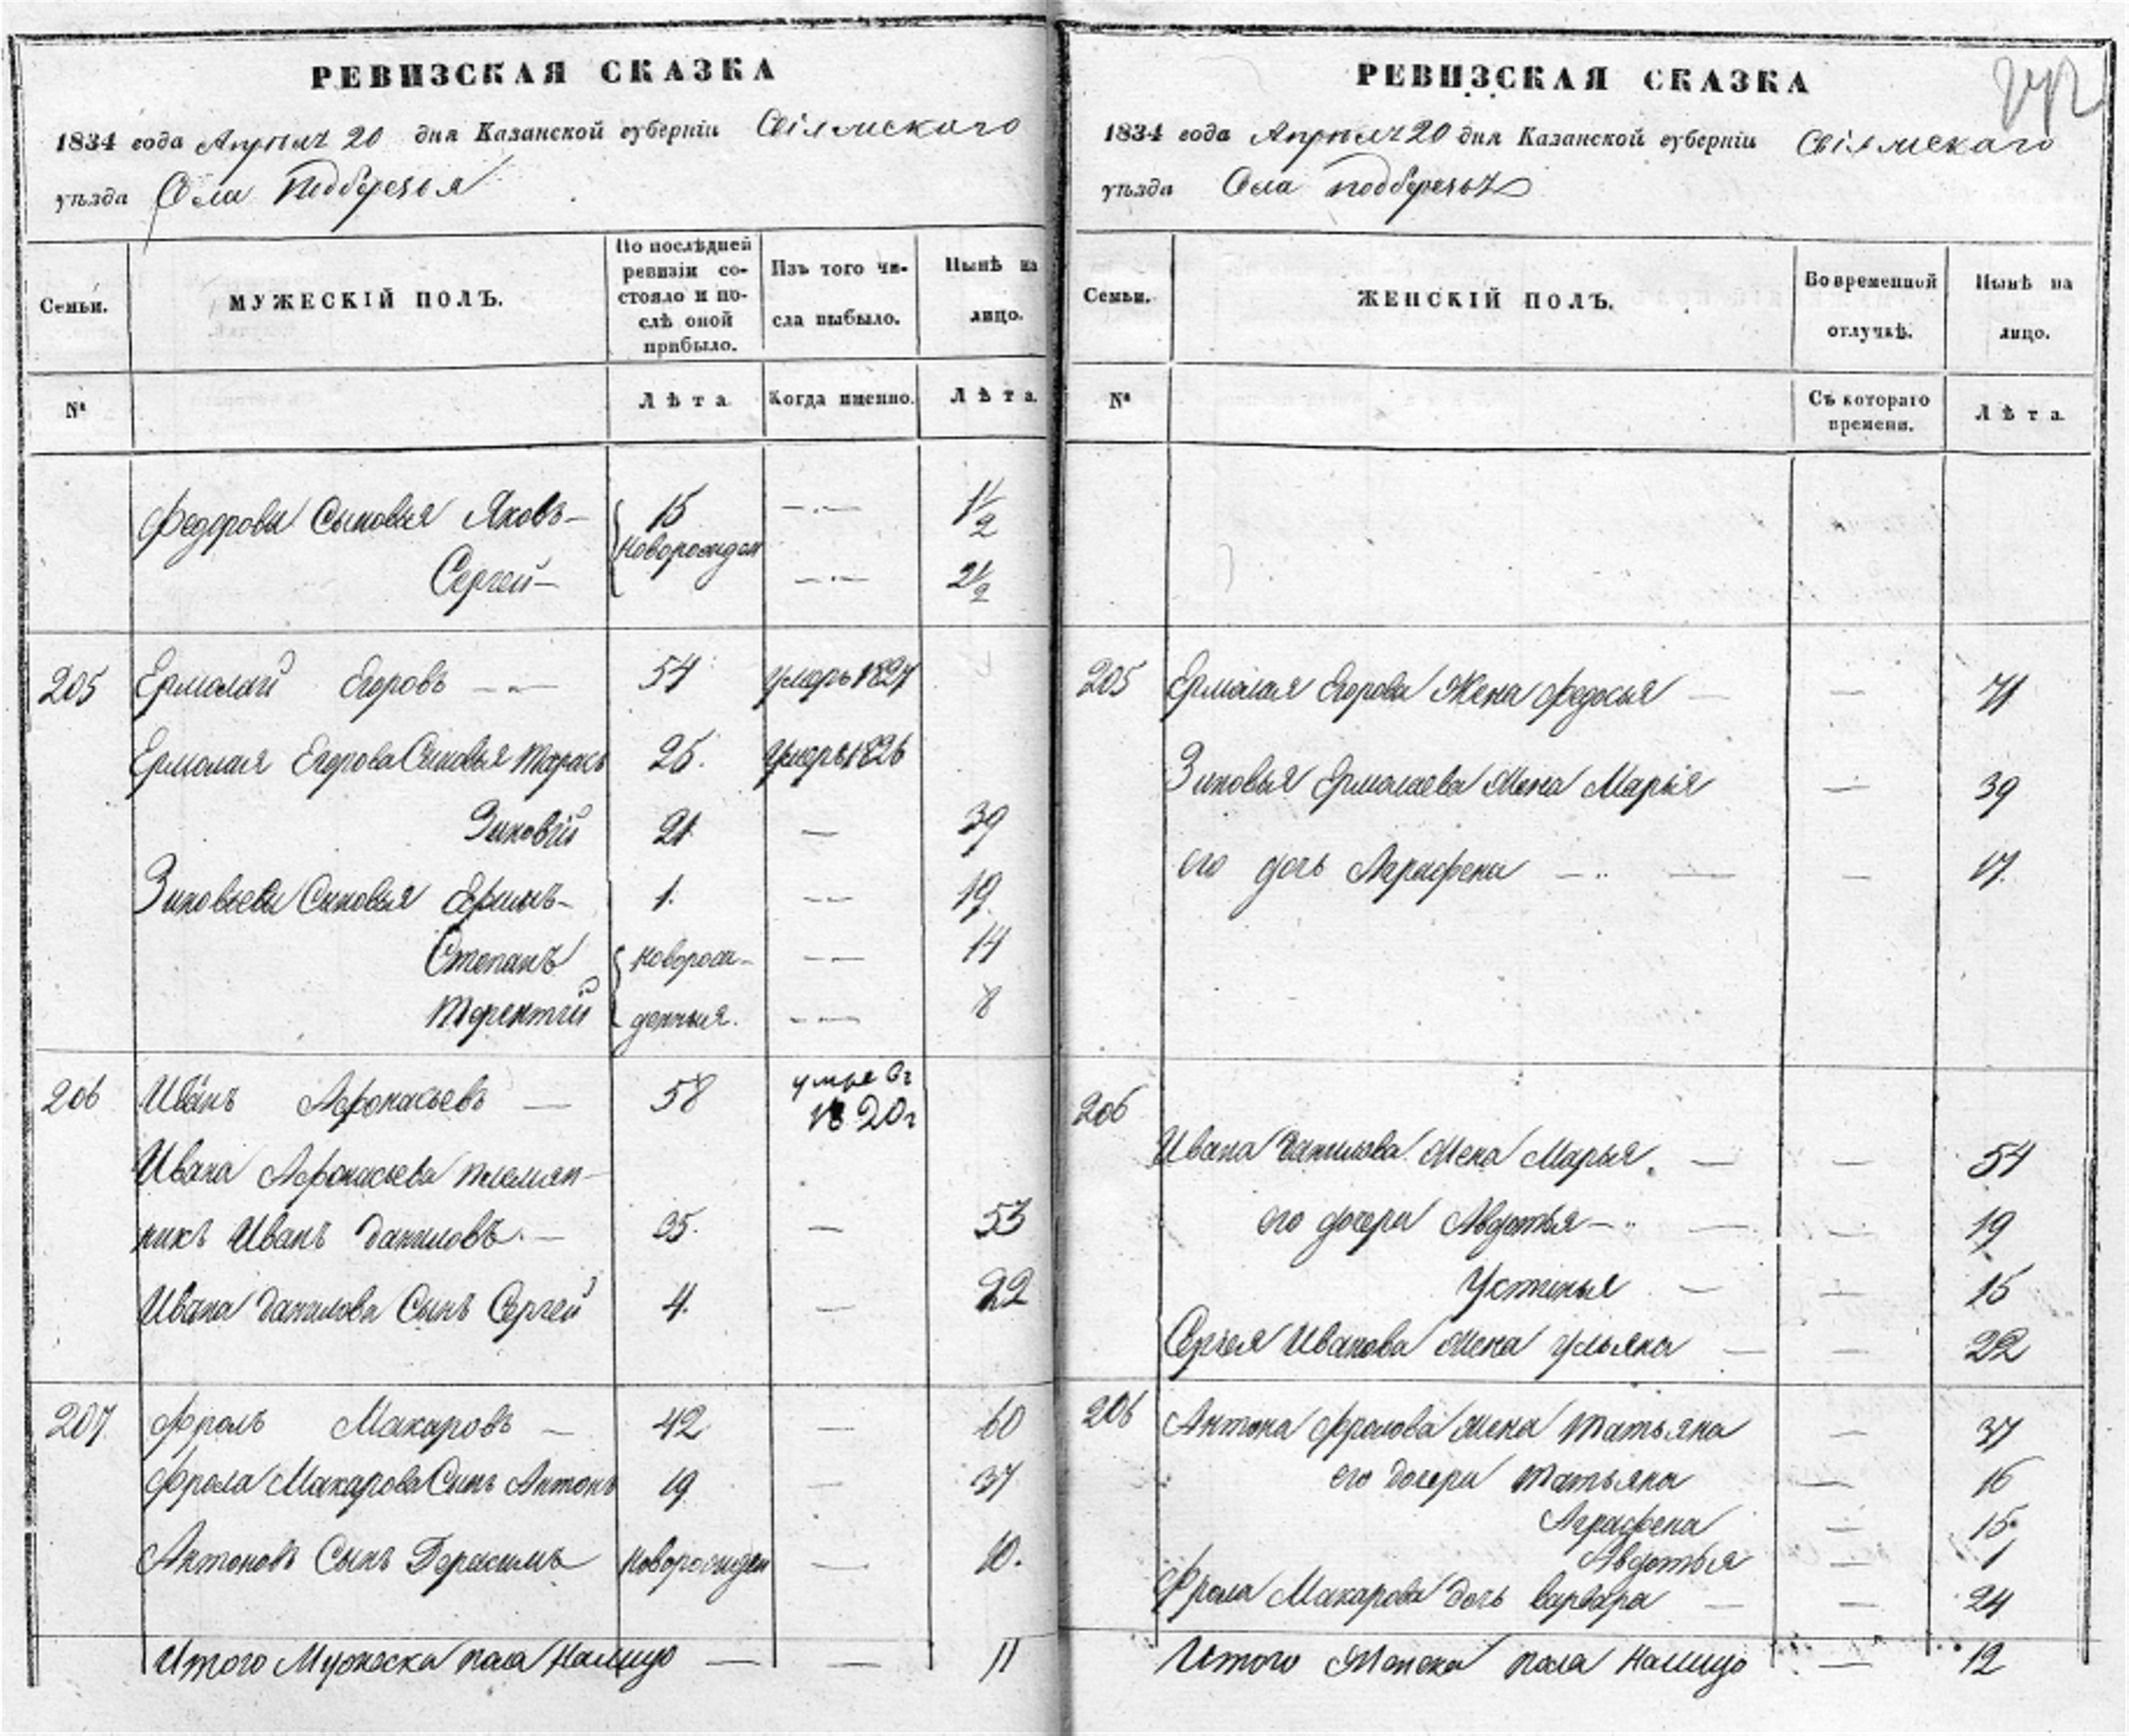 РЕВИЗСКАЯ СКАЗКА
1834 года Апреля 20 дня Казанской губерніи Свіяжскаго
уѣзда Села Подберезья
Семьи.
МУЖЕСКІЙ ПОЛЪ.
По послѣдней
ревизіи со-
стояло и по-
слѣ оной
прибыло.
Изъ того чи-
сла выбыло.
Нынѣ на
лицо.
№
Лѣта
Когда именно.
Лѣта.
Федоровы Сыновья Яковъ 15 1 1/2
новорожден
Сергей 2 1/2
205 Ермолай Егоровъ 54 умеръ 1827
Ермолая Егорова Сыновья Тарасъ 25. умеръ 1826
Зиновій 21 39
Зиновьевы Сыновья Ефимъ 1. 19.
Степанъ новорож- 14
Терентій денныя. 8
206 Иванъ Афонасьевъ 58 умре вг
1820г
Ивана Афонасьева племян-
никъ Иванъ Даниловъ. 35. 53
Ивана Данилова Сынъ Сергей 4. 22
207. Фролъ Макаровъ 42 60
Фрола Макарова Сынъ Антонъ 19 37
Антоновъ Сынъ Герасимъ новорожден 10.
Итого Мужеска пола налицо 11
РЕВИЗСКАЯ СКАЗКА
1834 года Апреля 20 дня Казанской губерніи Свіяжскаго
уѣзда Села Подберезья
Семьи.
ЖЕНСКІЙ ПОЛЪ.
Во временной
отлучкѣ.
Нынѣ на
лицо.
№
Съ котораго
времени.
Лѣта.
205 Ермолая Егорова Жена Федосья 71
Зиновья Ермолаева Жена Марья 39
его дочь Аграфена 17.
206
Ивана Данилова Жена Марья. 54
его дочери Авдотья 19
Устинья 15
Сергея Иванова Жена Ульяна 22
206 Антона Фролова Жена Татьяна 37
его дочери Татьяна 16
Аграфена 15.
Авдотья 1
Фрола Макарова дочь Варвара 24
Итого Женска пола налицо 12